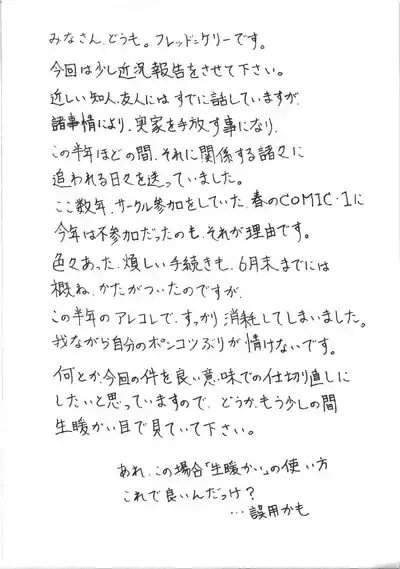 みなさん、どうも。フレッド=ケリーです。
今回は少し近況報告をさせて下さい。
近しい知人、友人にはすでに話していますが、
諸事情により、実家を手放す事になり、
この半年ほどの間、それに関係する諸々に
追われる日々を送っていました。
ここ数年、サークル参加をしていた、春のCOMIC・1に
今年は不参加だったのも、それが理由です。
色々あった、煩しい手続きも、6月末までには
概ね、かたがついたのですが、
この半年のアレコレで、すっかり消耗してしまいました。
我ながら自分のポンコツぶりが情けないです。
何とか、今回の件を良い意味での仕切り直しに
したいと思っていますので、どうか、もう少しの間
生暖かい目で見ていて下さい。
あれ、この場合「生暖かい」の使い方
これで良いんだっけ？
…誤用かも